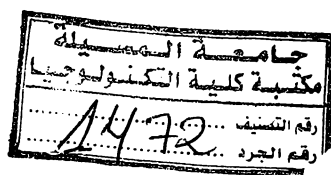 جامعة المسيلة
مكتبة كلية التكنولوجيا
رقم التصنيف ..........
رقم الجرد ..........
1472